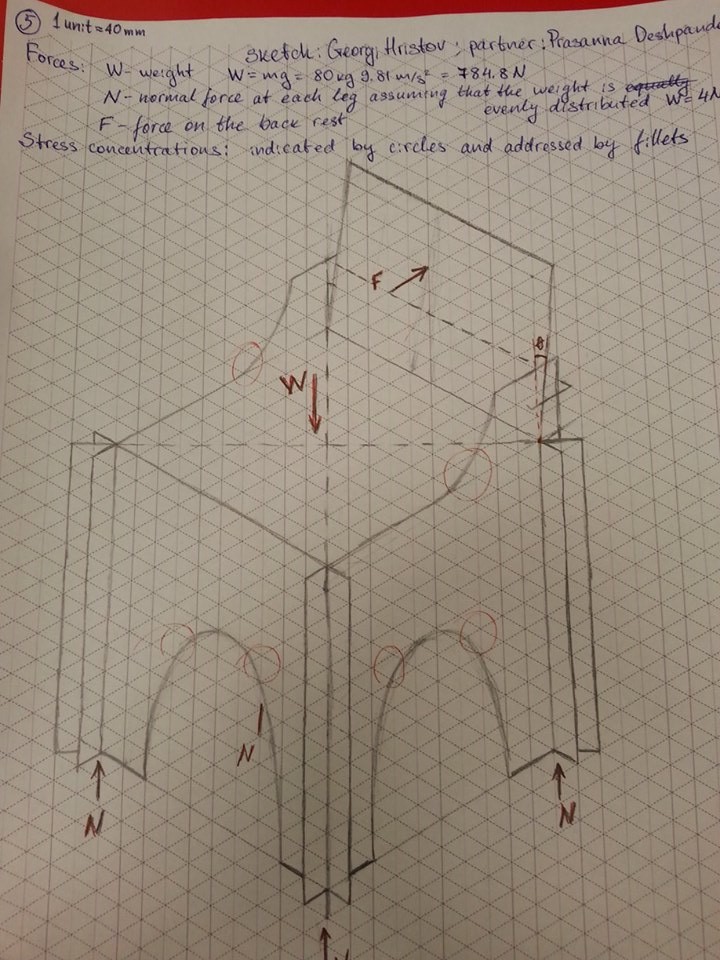 ⑤ 1 unit = 40mm
sketch: Georgi Hristov; partner: Prasanna Deshpande
Forces: W - weight W = mg = 80 kg 9.81 m/s² = 784.8 N
N - normal force at each leg assuming that the weight is equally
evenly distributed W = 4N
F - force on the back rest
Stress concentrations: indicated by circles and addressed by fillets
F
θ
W
N
N
N
N